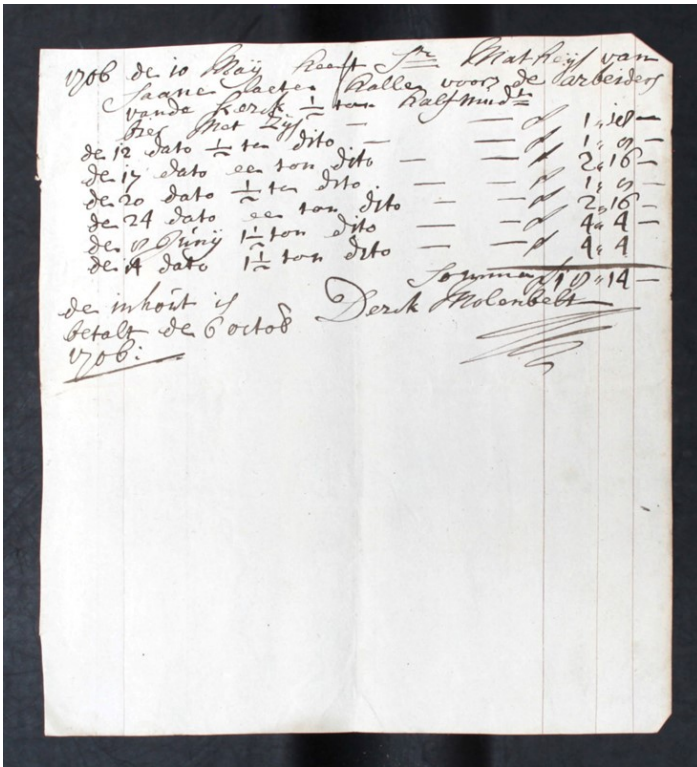 1706 de 10 Maÿ heeft Sr Matheijs van
laaten hallen voor de arbeiders
vande kerck ½ ton halfmud
bier met zijs — — ƒ 1 „ 18 —
de 12 dato ½ ton dito — — ƒ 1 „ 8 —
de 17 dato een ton dito — — ƒ 2 „ 16 —
de 20 dato ½ ton dito — — ƒ 1 „ 8 —
de 24 dato een ton dito — — ƒ 2 „ 16 —
de 8 Junij 1½ ton dito — — ƒ 4 „ 4 —
de 14 dato 1½ ton dito — — ƒ 4 „ 4
Somma ƒ 18 „ 14 —
de inhout is Derck Molenbelt
betalt de 6 octob
1706: